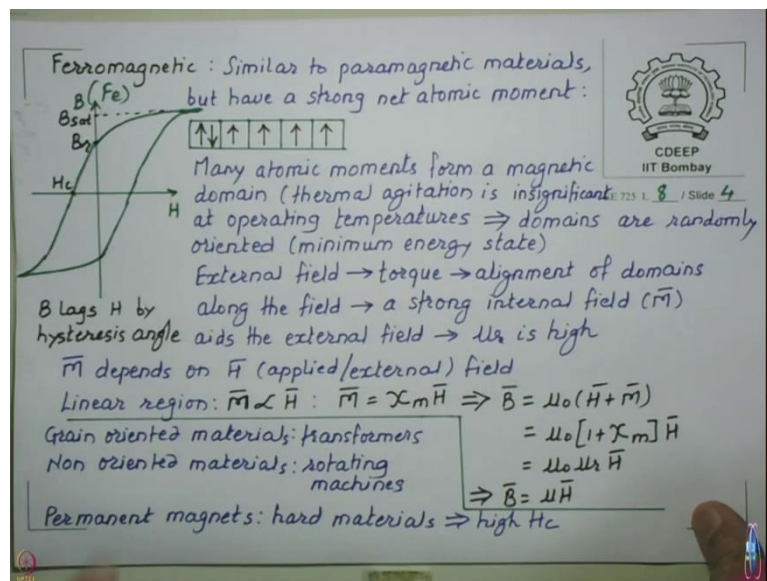 Ferromagnetic : Similar to paramagnetic materials,
but have a strong net atomic moment :
B (Fe)
Bsat
Br
Hc
H
CDEEP
IIT Bombay
EE 725 L 8 / Slide 4
Many atomic moments form a magnetic
domain (thermal agitation is insignificant
at operating temperatures ⇒ domains are randomly
oriented (minimum energy state)
External field → torque → alignment of domains
B lags H by
hysteresis angle
along the field → a strong internal field (M̄)
aids the external field → μr is high
M̄ depends on H̄ (applied/external) field
Linear region: M̄ ∝ H̄ : M̄ = χm H̄ ⇒ B̄ = μ0 (H̄ + M̄)
= μ0 [1 + χm] H̄
= μ0 μr H̄
⇒ B̄ = μH̄
Grain oriented materials: transformers
Non oriented materials: rotating
machines
Permanent magnets: hard materials ⇒ high Hc
NPTEL